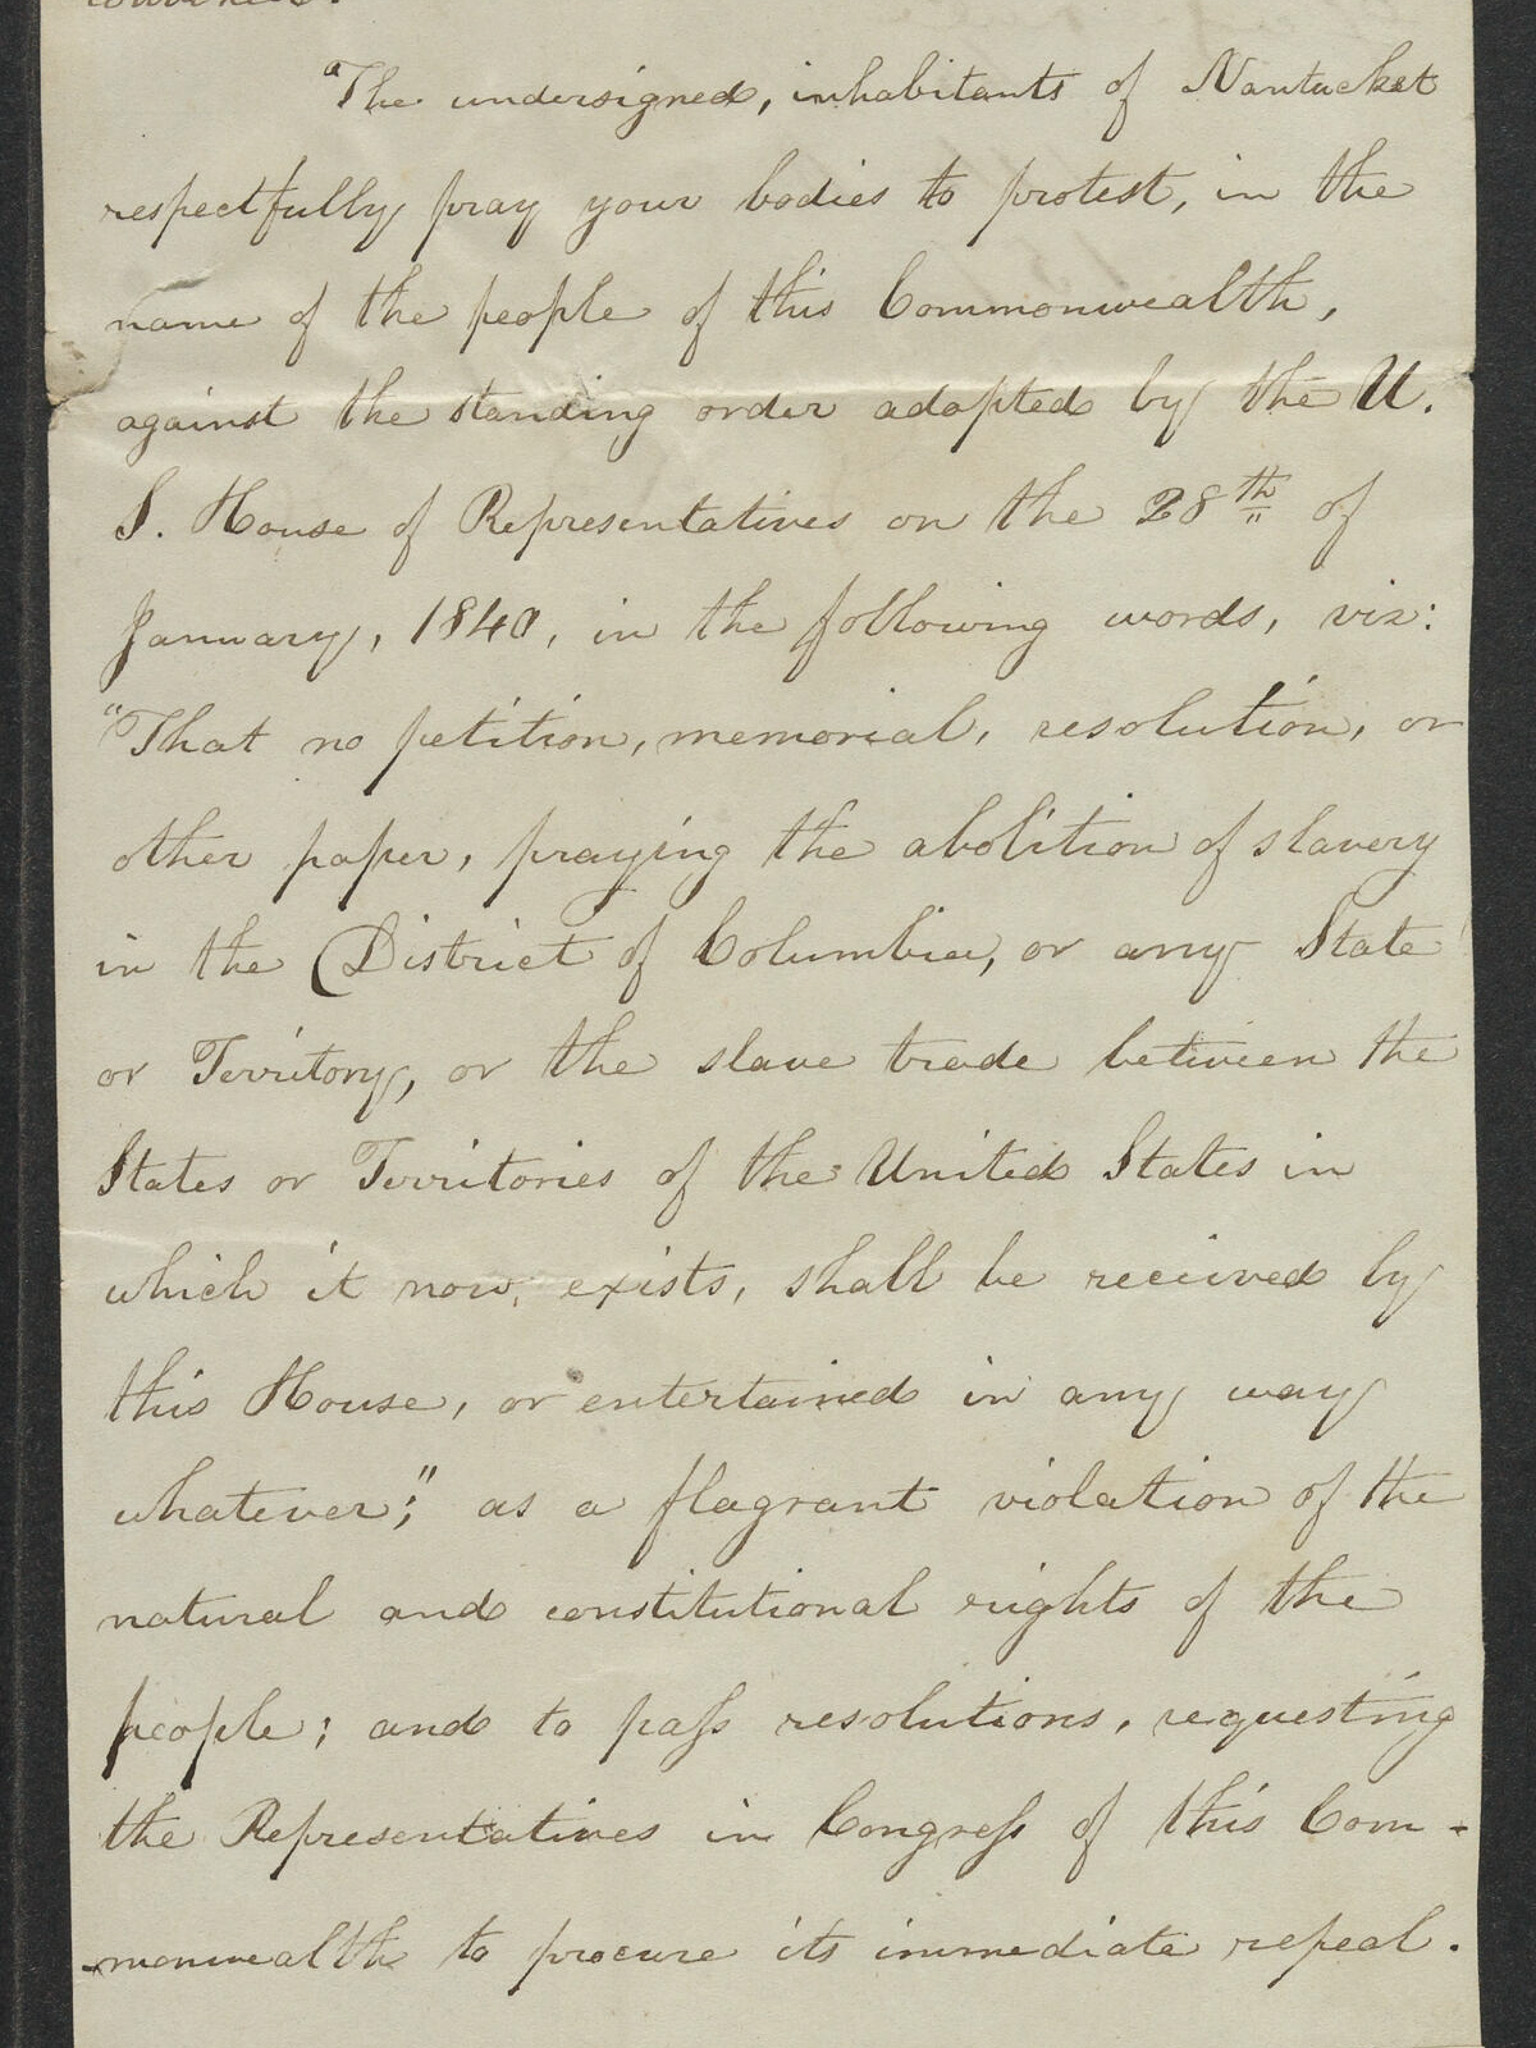 "The undersigned, inhabitants of Nantucket
respectfully pray your bodies to protest, in the
name of the people of this Commonwealth,
against the standing order adopted by the U.
S. House of Representatives on the 28th of
January, 1840, in the following words, viz:
"That no petition, memorial, resolution, or
other paper, praying the abolition of slavery
in the District of Columbia, or any State
or Territory, or the slave trade between the
States or Territories of the United States in
which it now exists, shall be received by
this House, or entertained in any way
whatever;" as a flagrant violation of the
natural and constitutional rights of the
people; and to pass resolutions, requesting
the Representatives in Congress of this Com-
-monwealth to procure its immediate repeal.